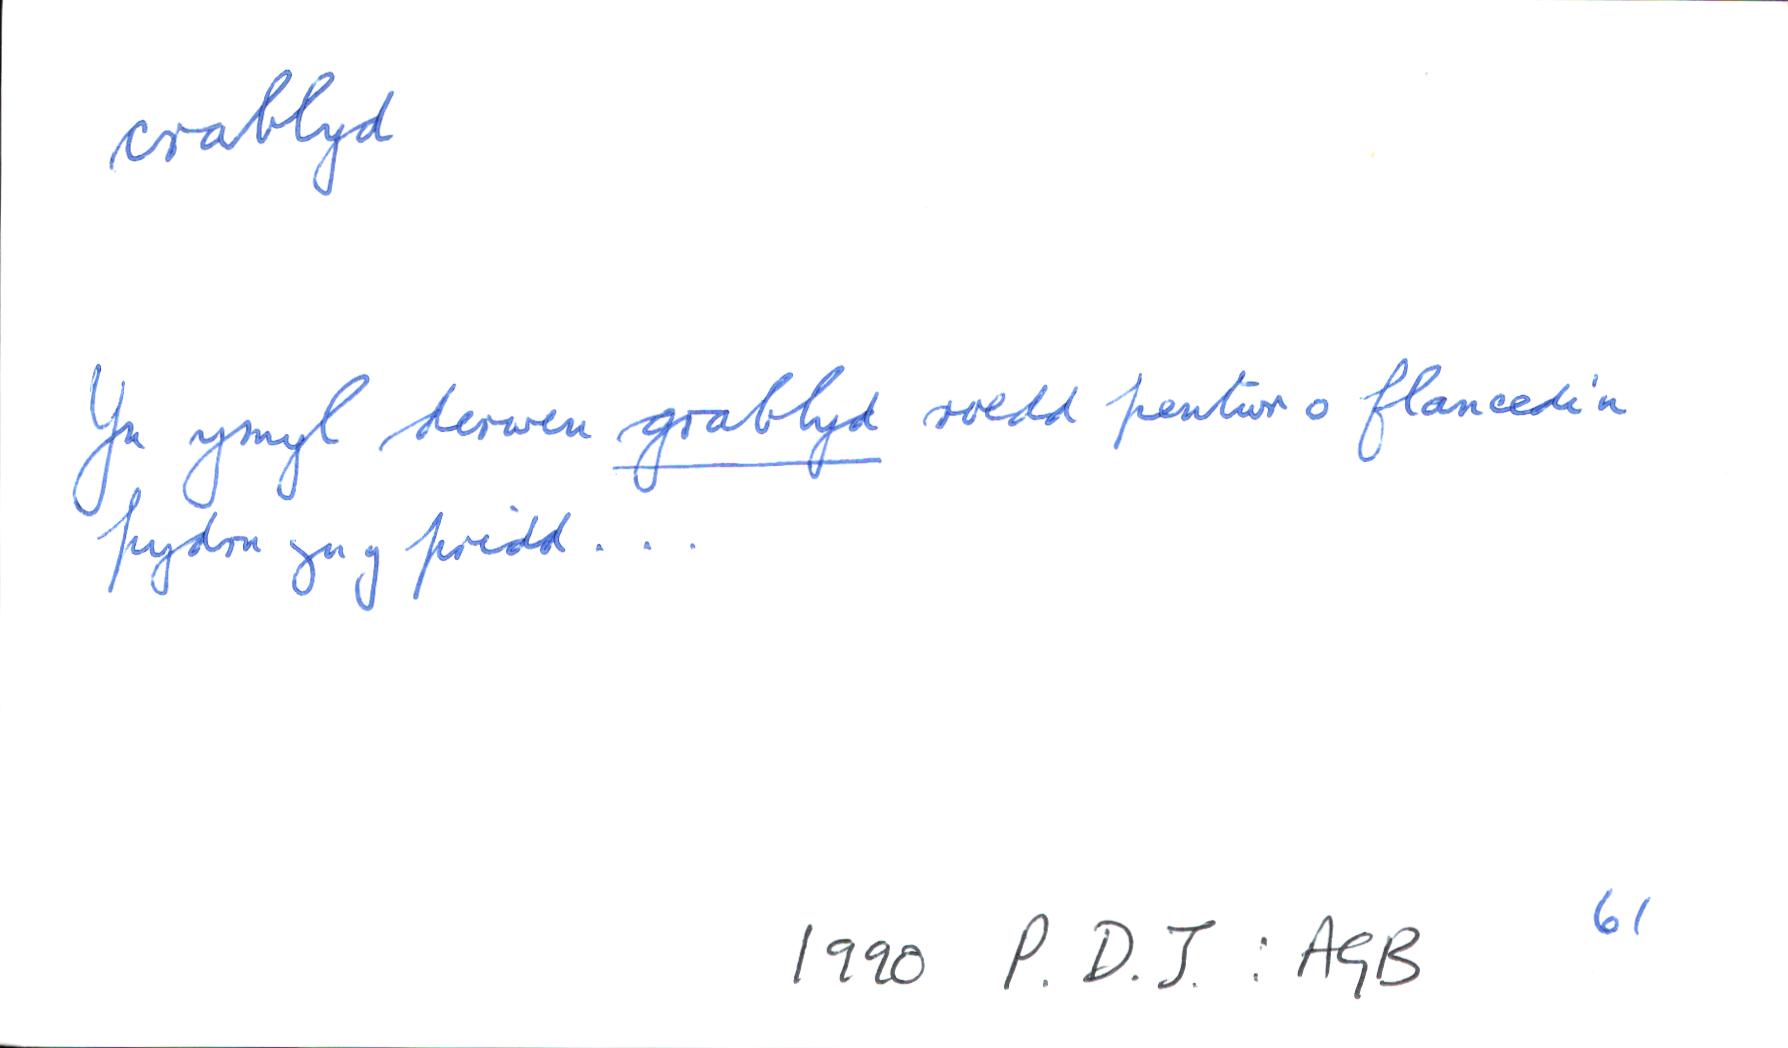 crablyd
Yn ymyl derwen grablyd roedd pentwr o flancedi'n
pydru yn y pridd . . .
61
1990 P. D. J. : AGB